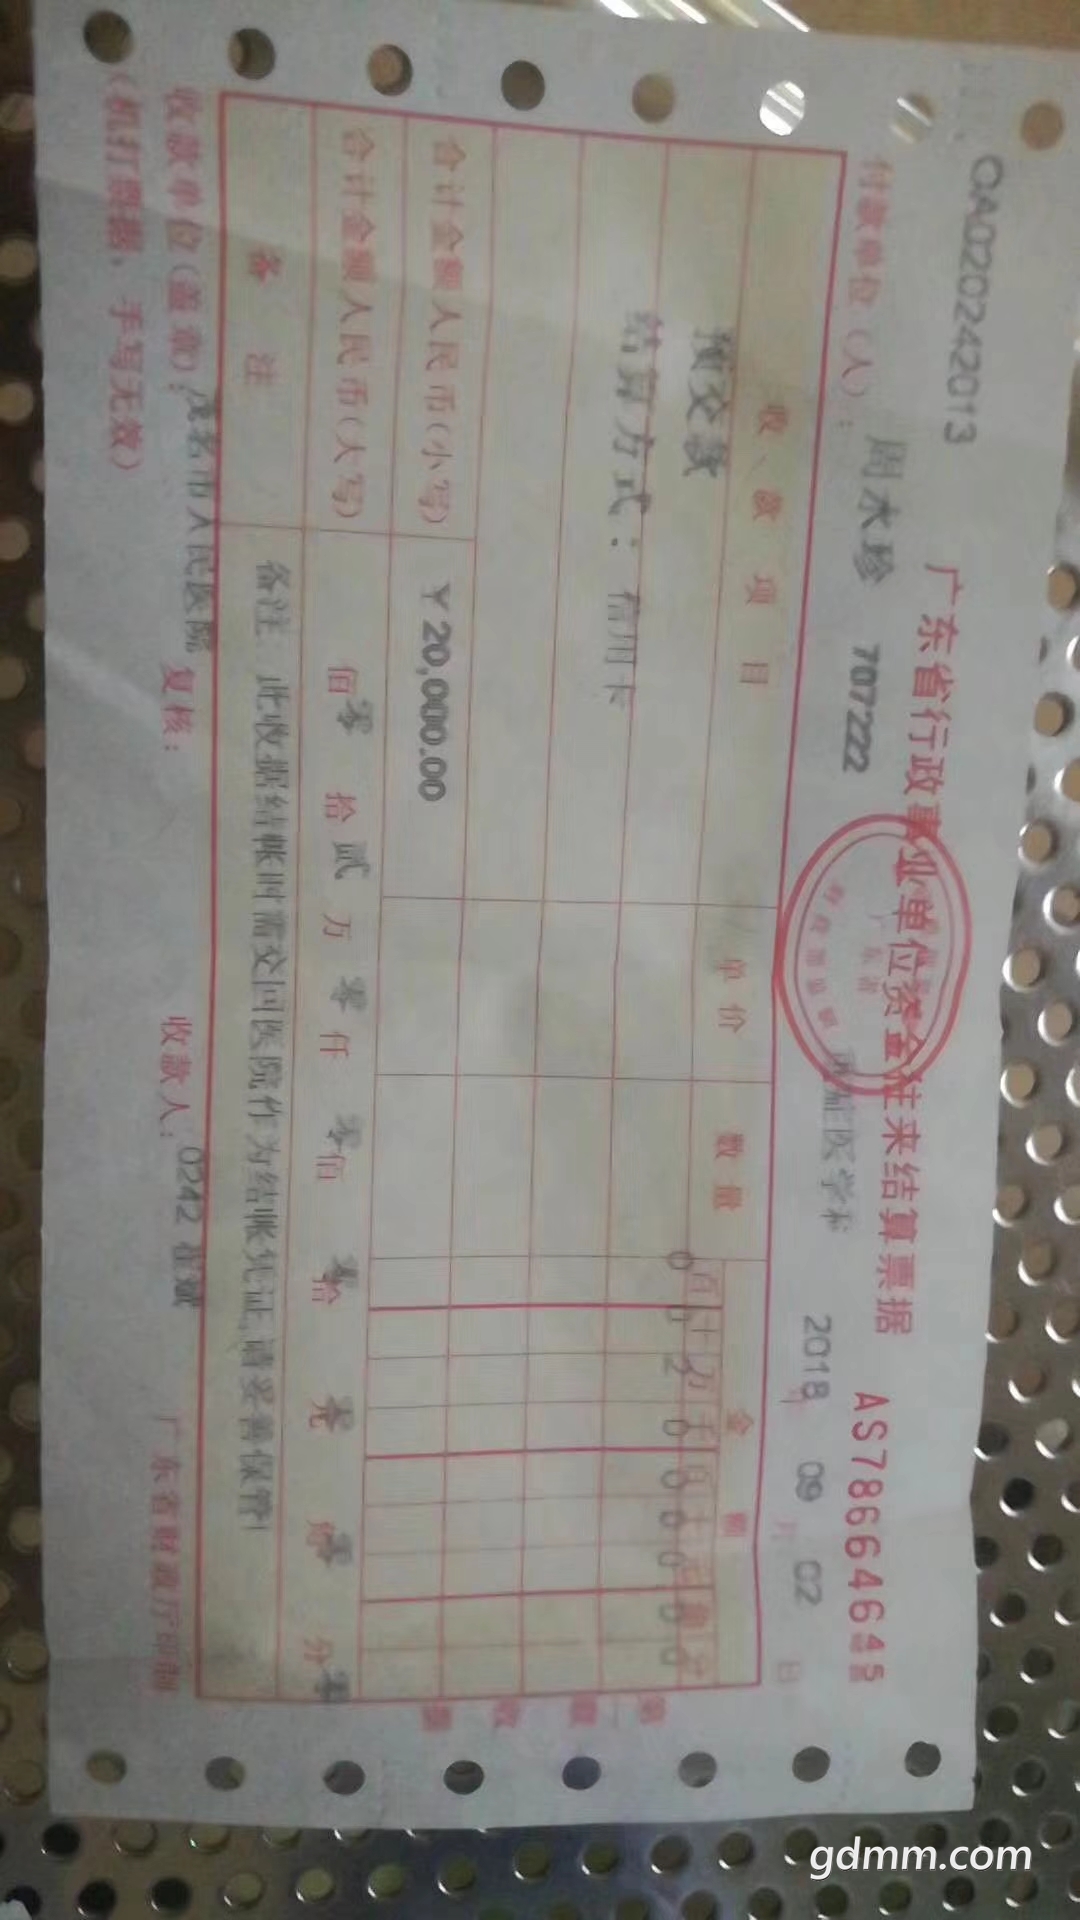 QA020242013
广东省行政事业单位资金往来结算票据
AS78664645
付款单位(人)： 周水珍 707222 重症医学科 2018 年 09 月 02 日
收 款 项 目 单 价 数 量 金 额
百 十 万 千 百 十 元 角 分
预交款 0 0 2 0 0 0 0 0 0
结算方式：信用卡
合计金额人民币(小写) ￥20,000.00
合计金额人民币(大写) 零佰 零拾 贰万 零仟 零佰 零拾 零元 零角 零分
备 注 备注 此收据结帐时需交回医院作为结帐凭证,请妥善保管!
收款单位(盖章)：茂名市人民医院 复核： 收款人：0242 崔斌 广东省财政厅印制
(机打票据，手写无效)
gdmm.com